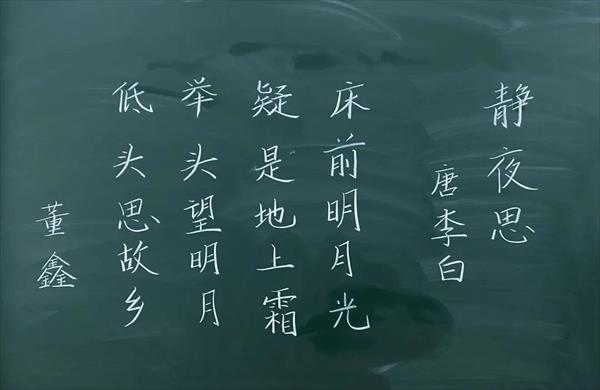 静夜思
唐李白
床前明月光
疑是地上霜
举头望明月
低头思故乡
董鑫